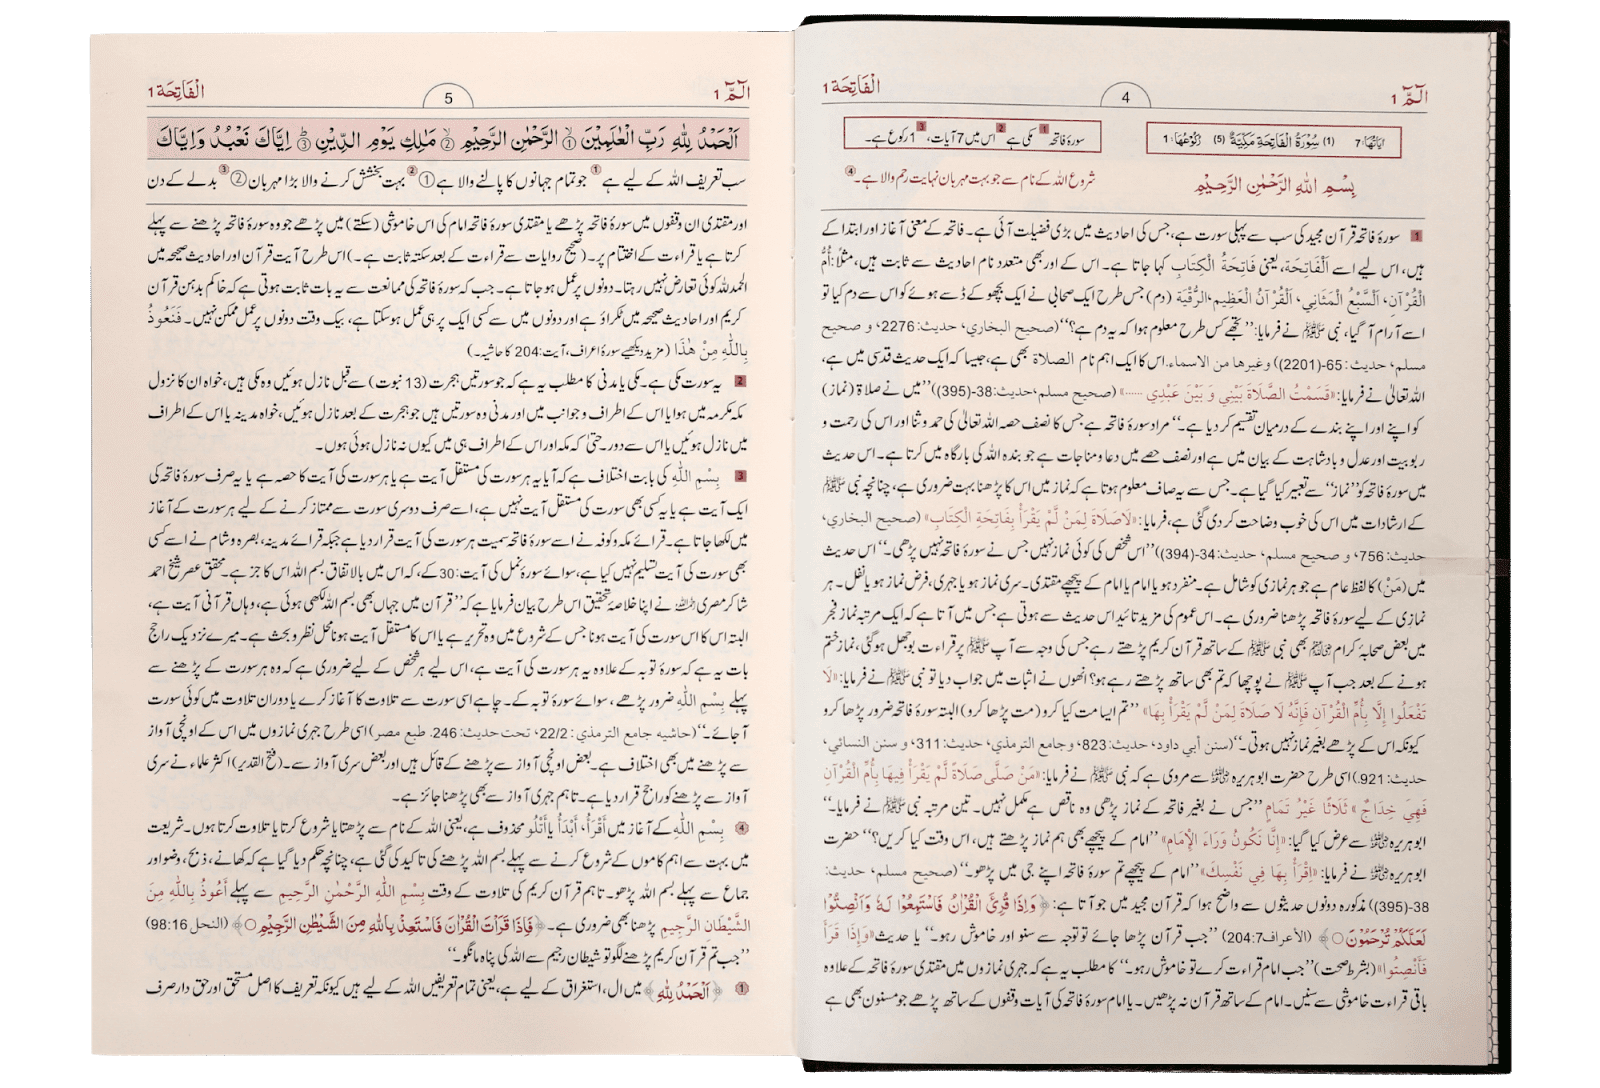 الٓمّٓ 1
4
الْفَاتِحَة 1
اٰيَاتُهَا: 7 (1) سُوْرَةُ الْفَاتِحَةِ مَكِّيَّةٌ (5) رُكُوْعُهَا: 1
سورۂ فاتحہ 1 مکی ہے 2 اس میں 7 آیات، 3 1 رکوع ہے۔
بِسْمِ اللّٰهِ الرَّحْمٰنِ الرَّحِيْمِ
شروع اللہ کے نام سے جو بہت مہربان نہایت رحم والا ہے۔ 4
1 سورۂ فاتحہ قرآن مجید کی سب سے پہلی سورت ہے، جس کی احادیث میں بڑی فضیلت آئی ہے۔ فاتحہ کے معنی آغاز اور ابتدا کے
ہیں، اس لیے اسے اَلْفَاتِحَة، یعنی فَاتِحَةُ الْكِتَابِ کہا جاتا ہے۔ اس کے اور بھی متعدد نام احادیث سے ثابت ہیں، مثلًا: أُمُّ
الْقُرْآنِ، اَلسَّبْعُ الْمَثَانِي، اَلْقُرْآنُ الْعَظِيم، الرُّقْيَة (دم) جس طرح ایک صحابی نے ایک بچھو کے ڈسے ہوئے کو اس سے دم کیا تو
اسے آرام آ گیا، نبی ﷺ نے فرمایا: ’’تجھے کس طرح معلوم ہوا کہ یہ دم ہے؟‘‘ (صحيح البخاري، حديث: 2276، و صحيح
مسلم، حديث: 65-(2201) وغيرها من الاسماء. اس کا ایک اہم نام الصلاة بھی ہے، جیسا کہ ایک حدیث قدسی میں ہے،
اللہ تعالیٰ نے فرمایا: «قَسَمْتُ الصَّلَاةَ بَيْنِي وَ بَيْنَ عَبْدِي ......» (صحيح مسلم، حديث: 38-(395)) ’’میں نے صلاۃ (نماز)
کو اپنے اور اپنے بندے کے درمیان تقسیم کر دیا ہے۔‘‘ مراد سورۂ فاتحہ ہے جس کا نصف حصہ اللہ تعالیٰ کی حمد و ثنا اور اس کی رحمت و
ربوبیت اور عدل و بادشاہت کے بیان میں ہے اور نصف حصے میں دعا و مناجات ہے جو بندہ اللہ کی بارگاہ میں کرتا ہے۔ اس حدیث
میں سورۂ فاتحہ کو ’’نماز‘‘ سے تعبیر کیا گیا ہے۔ جس سے یہ صاف معلوم ہوتا ہے کہ نماز میں اس کا پڑھنا بہت ضروری ہے، چنانچہ نبی ﷺ
کے ارشادات میں اس کی خوب وضاحت کر دی گئی ہے، فرمایا: «لَاصَلَاةَ لِمَنْ لَّمْ يَقْرَأْ بِفَاتِحَةِ الْكِتَابِ» (صحيح البخاري،
حديث: 756، و صحيح مسلم، حديث: 34-(394)) ’’اس شخص کی کوئی نماز نہیں جس نے سورۂ فاتحہ نہیں پڑھی۔‘‘ اس حدیث
میں (مَنْ) کا لفظ عام ہے جو ہر نمازی کو شامل ہے۔ منفرد ہو یا امام یا امام کے پیچھے مقتدی۔ سری نماز ہو یا جہری، فرض نماز ہو یا نفل۔ ہر
نمازی کے لیے سورۂ فاتحہ پڑھنا ضروری ہے۔ اس عموم کی مزید تائید اس حدیث سے ہوتی ہے جس میں آتا ہے کہ ایک مرتبہ نماز فجر
میں بعض صحابۂ کرام رضی اللہ عنہم بھی نبی ﷺ کے ساتھ قرآن کریم پڑھتے رہے جس کی وجہ سے آپ ﷺ پر قراءت بوجھل ہو گئی، نماز ختم
ہونے کے بعد جب آپ ﷺ نے پوچھا کہ تم بھی ساتھ پڑھتے رہے ہو؟ انھوں نے اثبات میں جواب دیا تو نبی ﷺ نے فرمایا: «لَا
تَفْعَلُوا إِلَّا بِأُمِّ الْقُرْآنِ فَإِنَّهُ لَا صَلَاةَ لِمَنْ لَّمْ يَقْرَأْ بِهَا» ’’تم ایسا مت کیا کرو (مت پڑھا کرو) البتہ سورۂ فاتحہ ضرور پڑھا کرو
کیونکہ اس کے پڑھے بغیر نماز نہیں ہوتی۔‘‘ (سنن أبي داود، حديث: 823، وجامع الترمذي، حديث: 311، و سنن النسائي،
حديث: 921.) اسی طرح حضرت ابوہریرہ رضی اللہ عنہ سے مروی ہے کہ نبی ﷺ نے فرمایا: «مَنْ صَلَّى صَلَاةً لَّمْ يَقْرَأْ فِيهَا بِأُمِّ الْقُرْآنِ
فَهِيَ خِدَاجٌ» ثَلَاثًا غَيْرُ تَمَامٍ ’’جس نے بغیر فاتحہ کے نماز پڑھی وہ ناقص ہے مکمل نہیں۔ تین مرتبہ نبی ﷺ نے فرمایا۔‘‘
ابوہریرہ رضی اللہ عنہ سے عرض کیا گیا: «إِنَّا نَكُونُ وَرَاءَ الْإِمَامِ» ’’امام کے پیچھے بھی ہم نماز پڑھتے ہیں، اس وقت کیا کریں؟‘‘ حضرت
ابوہریرہ رضی اللہ عنہ نے فرمایا: «اِقْرَأْ بِهَا فِي نَفْسِكَ» ’’امام کے پیچھے تم سورۂ فاتحہ اپنے جی میں پڑھو۔‘‘ (صحيح مسلم، حديث:
38-(395)) مذکورہ دونوں حدیثوں سے واضح ہوا کہ قرآن مجید میں جو آتا ہے: ﴿وَاِذَا قُرِئَ الْقُرْاٰنُ فَاسْتَمِعُوْا لَهٗ وَاَنْصِتُوْا
لَعَلَّكُمْ تُرْحَمُوْنَ ○﴾ (الأعراف 204:7) ’’جب قرآن پڑھا جائے تو توجہ سے سنو اور خاموش رہو۔‘‘ یا حدیث «وَإِذَا قَرَأَ
فَأَنْصِتُوا» (بشرط صحت) ’’جب امام قراءت کرے تو خاموش رہو۔‘‘ کا مطلب یہ ہے کہ جہری نمازوں میں مقتدی سورۂ فاتحہ کے علاوہ
باقی قراءت خاموشی سے سنیں۔ امام کے ساتھ قرآن نہ پڑھیں۔ یا امام سورۂ فاتحہ کی آیات وقفوں کے ساتھ پڑھے جو مسنون بھی ہے
الٓمّٓ 1
5
الْفَاتِحَة 1
اَلْحَمْدُ لِلّٰهِ رَبِّ الْعٰلَمِيْنَ ① الرَّحْمٰنِ الرَّحِيْمِ ② مٰلِكِ يَوْمِ الدِّيْنِ ③ اِيَّاكَ نَعْبُدُ وَاِيَّاكَ
سب تعریف اللہ کے لیے ہے 1 جو تمام جہانوں کا پالنے والا ہے ① 2 بہت بخشش کرنے والا بڑا مہربان ② 3 بدلے کے دن
اور مقتدی ان وقفوں میں سورۂ فاتحہ پڑھے یا مقتدی سورۂ فاتحہ امام کی اس خاموشی (سکتے) میں پڑھے جو وہ سورۂ فاتحہ پڑھنے سے پہلے
کرتا ہے یا قراءت کے اختتام پر۔ (صحیح روایات سے قراءت کے بعد سکتہ ثابت ہے۔) اس طرح آیت قرآن اور احادیث صحیحہ میں
الحمد للہ کوئی تعارض نہیں رہتا۔ دونوں پر عمل ہو جاتا ہے۔ جب کہ سورۂ فاتحہ کی ممانعت سے یہ بات ثابت ہوتی ہے کہ خاکم بدہن قرآن
کریم اور احادیث صحیحہ میں ٹکراؤ ہے اور دونوں میں سے کسی ایک پر ہی عمل ہو سکتا ہے، بیک وقت دونوں پر عمل ممکن نہیں۔ فَنَعُوذُ
بِاللّٰهِ مِنْ هٰذَا (مزید دیکھیے سورۂ اعراف، آیت: 204 کا حاشیہ۔)
2 یہ سورت مکی ہے۔ مکی یا مدنی کا مطلب یہ ہے کہ جو سورتیں ہجرت (13 نبوت) سے قبل نازل ہوئیں وہ مکی ہیں، خواہ ان کا نزول
مکہ مکرمہ میں ہوا یا اس کے اطراف و جوانب میں اور مدنی وہ سورتیں ہیں جو ہجرت کے بعد نازل ہوئیں، خواہ مدینہ یا اس کے اطراف
میں نازل ہوئیں یا اس سے دور۔ حتیٰ کہ مکہ اور اس کے اطراف ہی میں کیوں نہ نازل ہوئی ہوں۔
3 بِسْمِ اللّٰهِ کی بابت اختلاف ہے کہ آیا یہ ہر سورت کی مستقل آیت ہے یا ہر سورت کی آیت کا حصہ ہے یا یہ صرف سورۂ فاتحہ کی
ایک آیت ہے یا یہ کسی بھی سورت کی مستقل آیت نہیں ہے، اسے صرف دوسری سورت سے ممتاز کرنے کے لیے ہر سورت کے آغاز
میں لکھا جاتا ہے۔ قرائے مکہ و کوفہ نے اسے سورۂ فاتحہ سمیت ہر سورت کی آیت قرار دیا ہے جبکہ قرائے مدینہ، بصرہ و شام نے اسے کسی
بھی سورت کی آیت تسلیم نہیں کیا ہے، سوائے سورۂ نمل کی آیت: 30 کے، کہ اس میں بالاتفاق بسم اللہ اس کا جز ہے۔ محقق عصر شیخ احمد
شاکر مصری رحمہ اللہ نے اپنا خلاصۂ تحقیق اس طرح بیان فرمایا ہے کہ ’’قرآن میں جہاں بھی بسم اللہ لکھی ہوئی ہے، وہاں قرآنی آیت ہے،
البتہ اس کا اس سورت کی آیت ہونا جس کے شروع میں وہ تحریر ہے یا اس کا مستقل آیت ہونا محل نظر و بحث ہے۔ میرے نزدیک راجح
بات یہ ہے کہ سورۂ توبہ کے علاوہ یہ ہر سورت کی آیت ہے، اس لیے ہر شخص کے لیے ضروری ہے کہ وہ ہر سورت کے پڑھنے سے
پہلے بِسْمِ اللّٰهِ ضرور پڑھے، سوائے سورۂ توبہ کے۔ چاہے اسی سورت سے تلاوت کا آغاز کرے یا دوران تلاوت میں کوئی سورت
آ جائے۔‘‘ (حاشيه جامع الترمذي: 22/2، تحت حديث: 246. طبع مصر) اسی طرح جہری نمازوں میں اس کے اونچی آواز
سے پڑھنے میں بھی اختلاف ہے۔ بعض اونچی آواز سے پڑھنے کے قائل ہیں اور بعض سری آواز سے۔ (فتح القدیر) اکثر علماء نے سری
آواز سے پڑھنے کو راجح قرار دیا ہے۔ تاہم جہری آواز سے بھی پڑھنا جائز ہے۔
4 بِسْمِ اللّٰهِ کے آغاز میں أَقْرَأُ، أَبْدَأُ یا أَتْلُو محذوف ہے، یعنی اللہ کے نام سے پڑھتا یا شروع کرتا یا تلاوت کرتا ہوں۔ شریعت
میں بہت سے اہم کاموں کے شروع کرنے سے پہلے بسم اللہ پڑھنے کی تاکید کی گئی ہے، چنانچہ حکم دیا گیا ہے کہ کھانے، ذبح، وضو اور
جماع سے پہلے بسم اللہ پڑھو۔ تاہم قرآن کریم کی تلاوت کے وقت بِسْمِ اللّٰهِ الرَّحْمٰنِ الرَّحِيمِ سے پہلے أَعُوذُ بِاللّٰهِ مِنَ
الشَّيْطَانِ الرَّجِيمِ پڑھنا بھی ضروری ہے۔ ﴿فَاِذَا قَرَاْتَ الْقُرْاٰنَ فَاسْتَعِذْ بِاللّٰهِ مِنَ الشَّيْطٰنِ الرَّجِيْمِ ○﴾ (النحل 98:16)
’’جب تم قرآن کریم پڑھنے لگو تو شیطان رجیم سے اللہ کی پناہ مانگو۔‘‘
1 ﴿اَلْحَمْدُ لِلّٰهِ﴾ میں ال، استغراق کے لیے ہے، یعنی تمام تعریفیں اللہ کے لیے ہیں کیونکہ تعریف کا اصل مستحق اور حق دار صرف